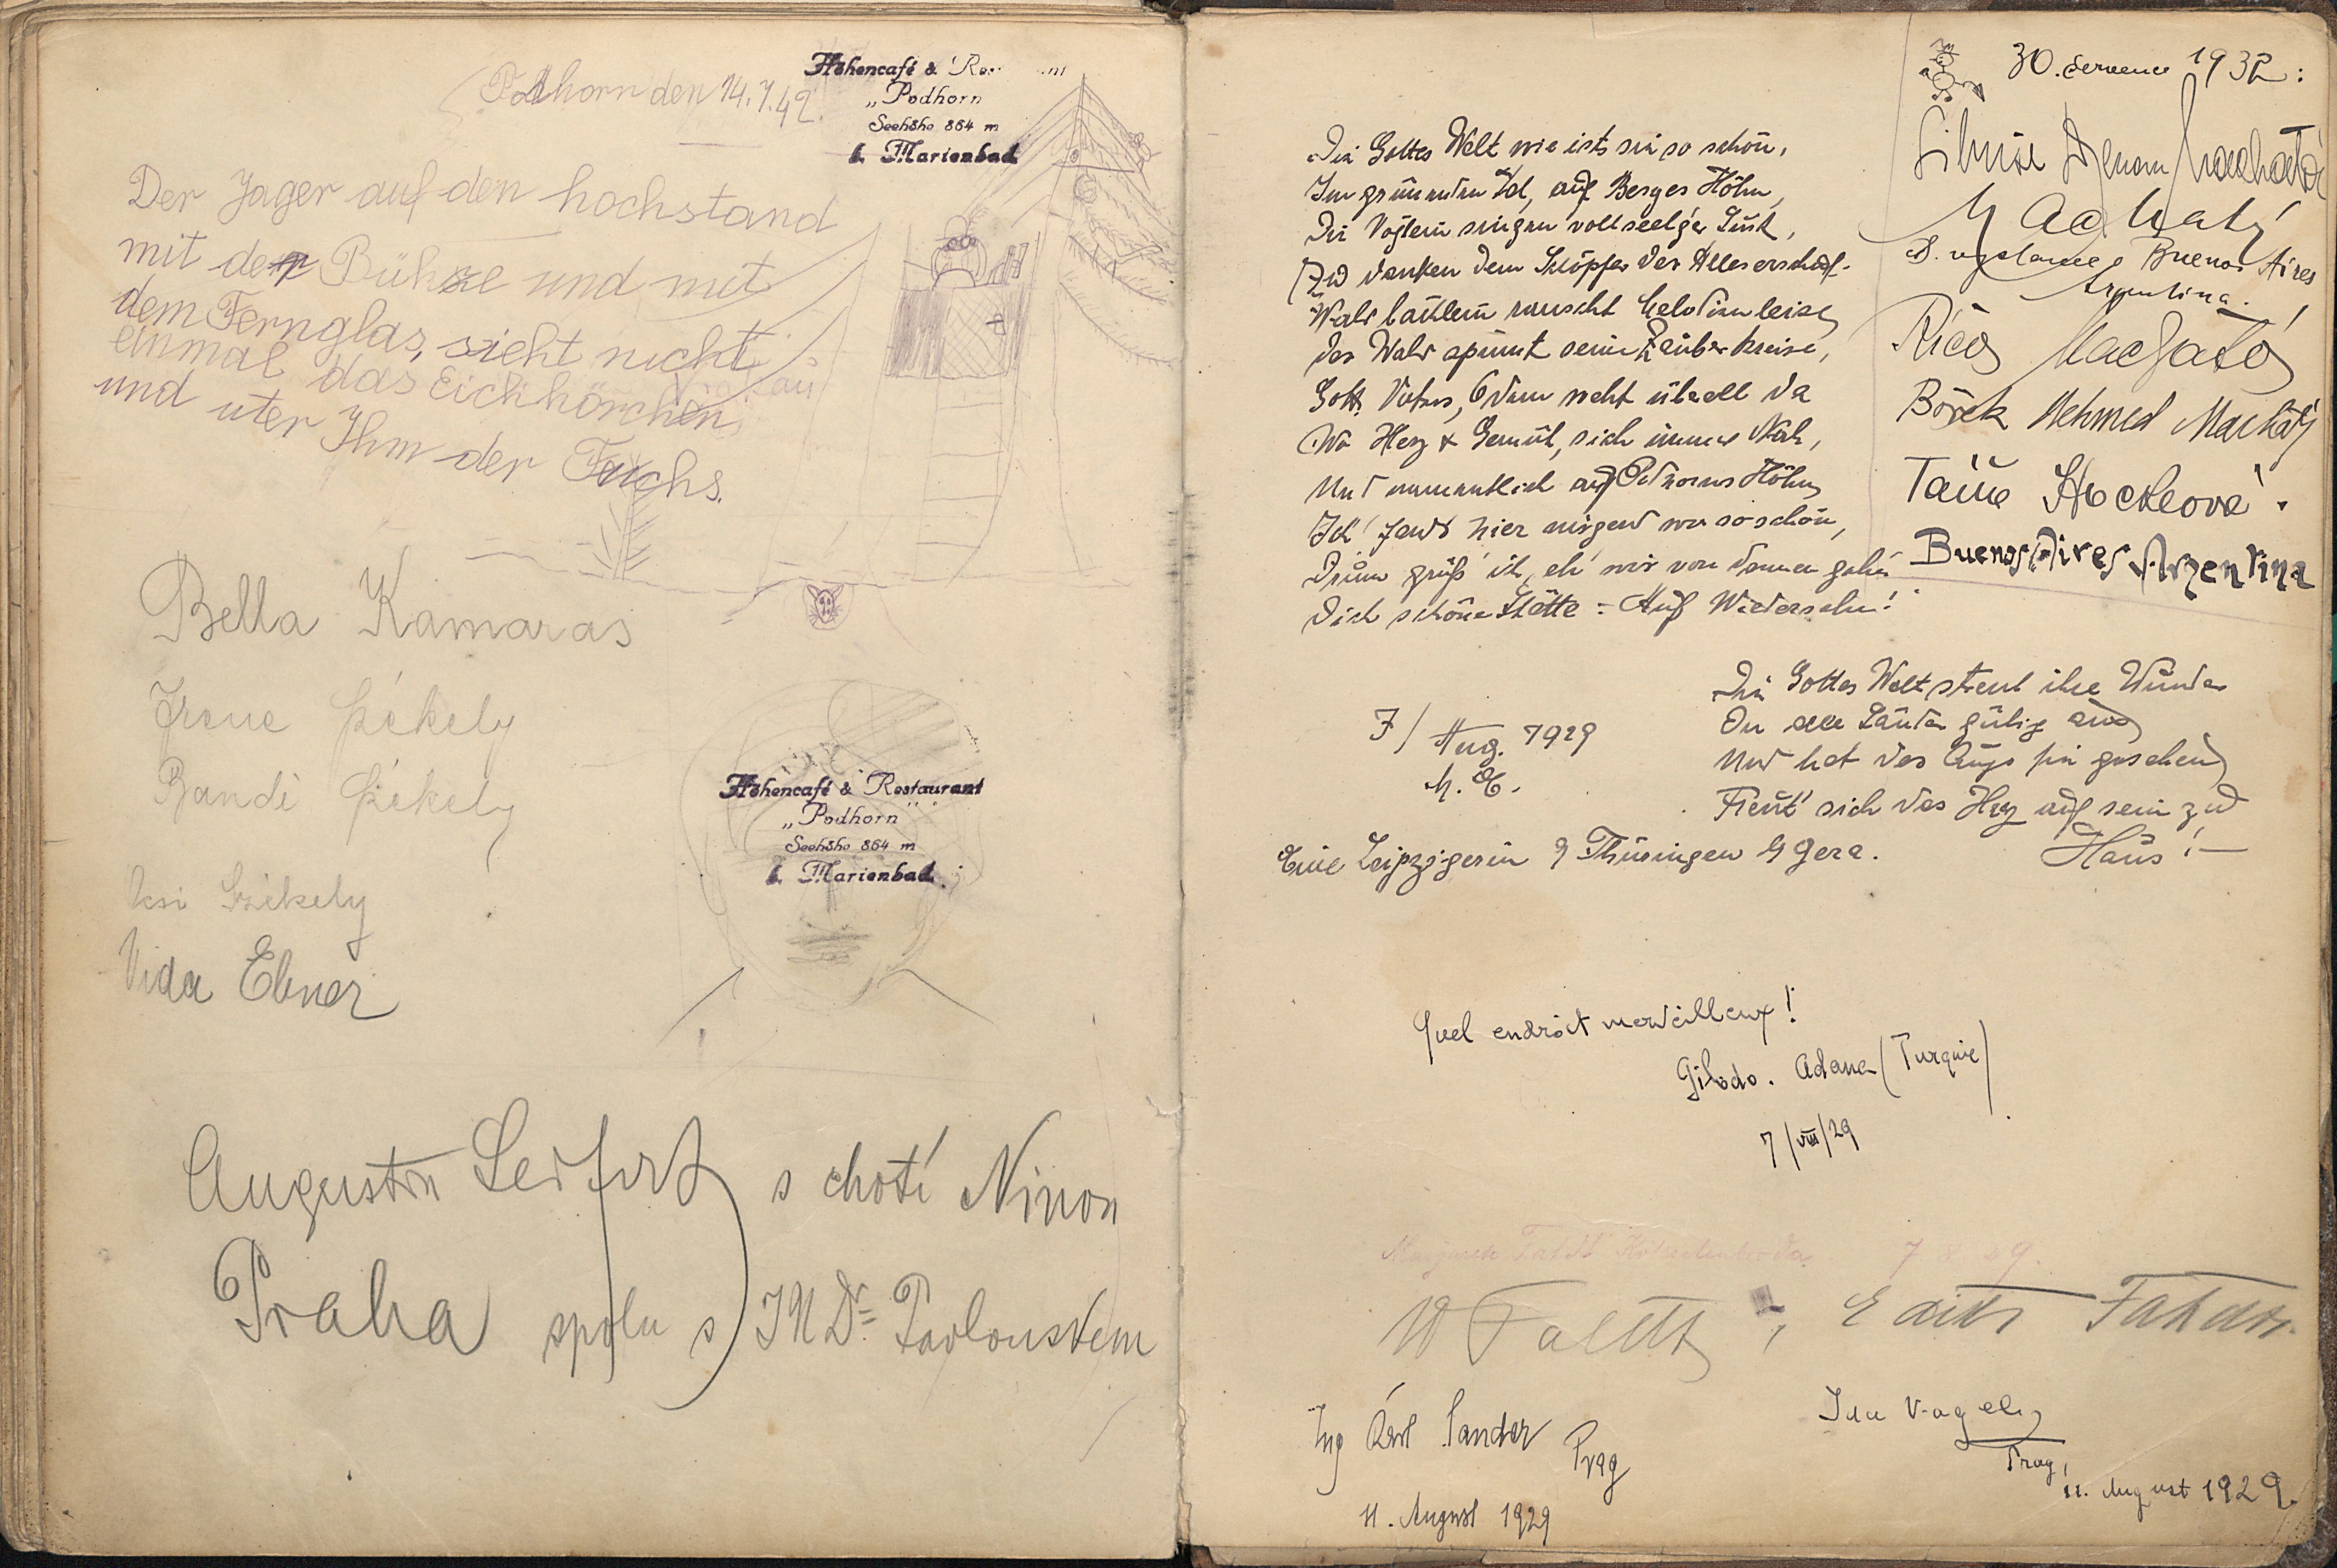 Podhorn den 14.7.42.
Höhencafé & Res
„Podhorn
Seehöhe 864 m
b. Marienbad
Der Jager auf den hochstand
mit der Bühse und mit
dem Fernglas, sieht nicht
einmal das Eichhörnchen
und uter Ihm der Fuchs.
Bella Kamaras
Irene Székely
Bandi Székely
Székely
Vida Ebner
Höhencafé & Restaurant
„Podhorn"
Seehöhe 864 m
b. Marienbad
Augustin Seifert s chotí Ninon
Praha spolu s Dr. Pavlouskem
Die Gottes Welt wie ists sie so schön,
Im grünenden Tal, auf Berges Höhn,
Die Vöglein singen voll seel'ger Lust,
Und danken dem Schöpfer der Alles erschuf.
Wald bächlein rauscht Melodien leise,
Der Wald spinnt seine Zauberkreise,
Gott. Vaters, Odem weht überall da
Wo Herz & Gemüt, sich immer Nah,
Und namentlich auf Podhorns Höhn
Ich fand hier nirgend wo so schön,
Drum grüß ich, eh' wir von dannen gehn
Dich schöne Stätte: Auf Wiedersehn!
7/Aug. 1929
M. E.
Die Gottes Welt streut ihre Wunder
On alle Länder gütig aus
Und hat das Auge sie gesehen
Freut' sich das Herz auf sein zu
Haus!—
Eine Leipzigerin Thüringen Gera.
30. července 1932:
Machatá
Buenos Aires
Argentina.
Machatá
Bořek Mehmed Machatý
Táňa
Buenos Aires Argentina
Quel endroit merveilleux!
Gilodo. Adana (Turquie)
7/VIII/29
7. 8. 29.
Edith Fahdt
Ing Karl Sander Prag
11. August 1929
Prag,
11. August 1929.